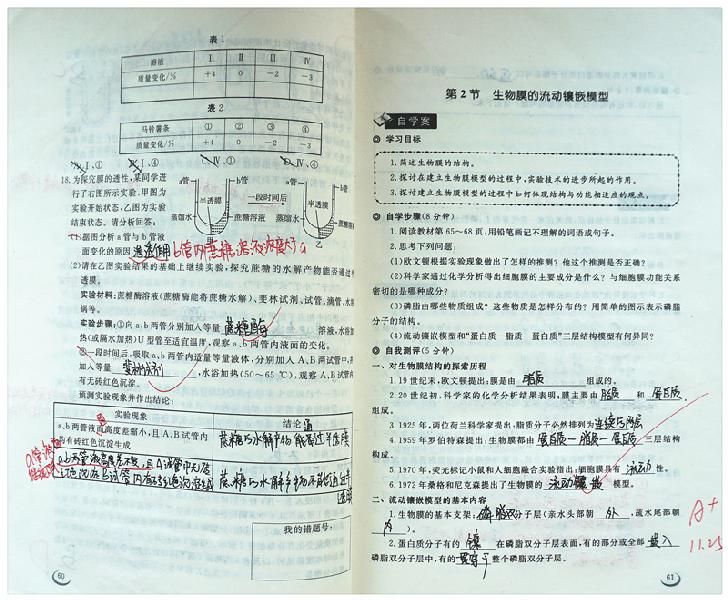 表 1
溶液 Ⅰ Ⅱ Ⅲ Ⅳ
质量变化/% +4 0 -2 -3
表 2
马铃薯条 ① ② ③ ④
质量变化/% +4 0 -2 -3
A. Ⅰ、① B. Ⅰ、④ C. Ⅳ、① D. Ⅳ、④
18. 为探究膜的透性,某同学进
行了右图所示实验,甲图为
实验开始状态,乙图为实验
结束状态。请分析回答。
a管 b管 a管 b管
半透膜 一段时间后 半透膜
蒸馏水 蔗糖溶液 蒸馏水 蔗糖溶液
甲 乙
(1)据图分析 a 管与 b 管液
面变化的原因 渗透作用
(2)请在乙图实验结果的基础上继续实验,探究蔗糖的水解产物能否通过
透膜。
实验材料:蔗糖酶溶液(蔗糖酶能将蔗糖水解)、斐林试剂、试管、滴管、水
锅等。
实验步骤:①向 a、b 两管分别加入等量 蔗糖酶 溶液,水浴加
热(或隔水加热)U 型管至适宜温度,观察 a、b 两管内液面的变化。
②一段时间后,吸取 a、b 两管内适量等量液体,分别加入 A、B 两试管中,并
加入等量 斐林试剂 ,水浴加热(50~65 ℃),观察 A、B 试管内
有无砖红色沉淀。
预测实验现象并作出结论:
实验现象 结论
a、b 两管液面高度差缩小,且 A、B 试管内
均有砖红色沉淀生成
蔗糖的水解产物能通过半透膜
我的错题号:
60
第 2 节 生物膜的流动镶嵌模型
自学案
学习目标
1. 简述生物膜的结构。
2. 探讨在建立生物膜模型的过程中,实验技术的进步所起的作用。
3. 探讨建立生物膜模型的过程中如何体现结构与功能相适应的观点。
自学步骤(8 分钟)
1. 阅读教材第 65~68 页,用铅笔画记不理解的词语或句子。
2. 思考下列问题:
(1)欧文顿根据实验现象做出了怎样的推测?他这个推测是否正确?
(2)科学家通过化学分析得出细胞膜的主要成分是什么?与细胞膜功能关系
密切的是哪种成分?
(3)磷脂由哪些物质组成?这些物质是怎样分布的?用简单的图示表示磷脂
分子的结构。
(4)流动镶嵌模型和“蛋白质—脂质—蛋白质”三层结构模型有何异同?
自我测评(5 分钟)
一、对生物膜结构的探索历程
1. 19 世纪末,欧文顿提出:膜是由 脂质 组成的。
2. 20 世纪初,科学家的化学分析结果表明,膜主要由 脂质 和 蛋白质
组成。
3. 1925 年,两位荷兰科学家提出,脂质分子必然排列为 连续两层
4. 1959 年罗伯特森提出:生物膜都由 蛋白质—脂质—蛋白质 三层结构
构成。
5. 1970 年,荧光标记小鼠和人细胞融合实验指出:细胞膜具有 流动 性。
6. 1972 年桑格和尼克森提出了生物膜的 流动镶嵌 模型。
二、流动镶嵌模型的基本内容
1. 生物膜的基本支架:磷脂双分子层(亲水头部朝 外 ,疏水尾部朝
内 )。
2. 蛋白质分子有的 镶 在磷脂双分子层表面,有的部分或全部 嵌入
磷脂双分子层中,有的 贯穿于 整个磷脂双分子层。
A+
11.25
61